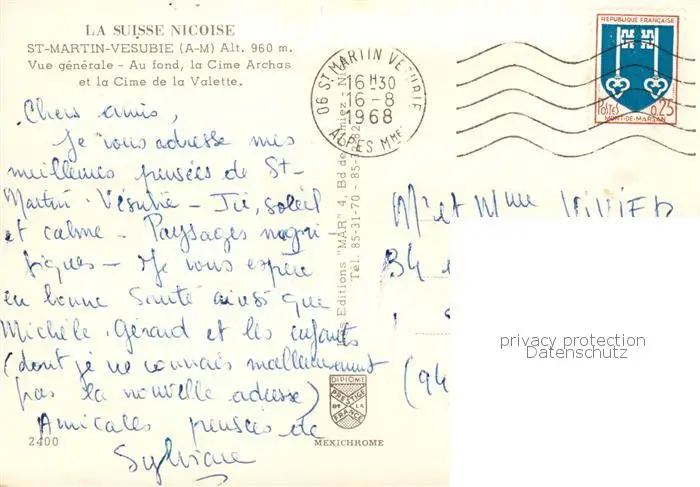 LA SUISSE NICOISE
ST-MARTIN-VESUBIE (A-M) Alt. 960 m.
Vue générale - Au fond, la Cime Archas
et la Cime de la Valette.
Chers amis,
Je vous adresse mes
meilleures pensées de St-
Martin-Vésubie - Ici, soleil
et calme - Paysages magni
fiques - Je vous espère
en bonne santé ainsi que
Michèle, Gérard et les enfants
(dont je ne connais malheureusement
pas la nouvelle adresse)
Amicales pensées de
Sylviane
2400
Editions "MAR" 4, Bd de
Tél. 85-31-70 - 85-
DIPLOME
PRESTIGE
DE LA
FRANCE
MEXICHROME
06 ST MARTIN VESUBIE
16H30
16-8
1968
ALPES Mmes
REPUBLIQUE FRANÇAISE
POSTES
0,25
MONT-DE-MARSAN
Mr et Mme VIVIER
34
(94
privacy protection
Datenschutz